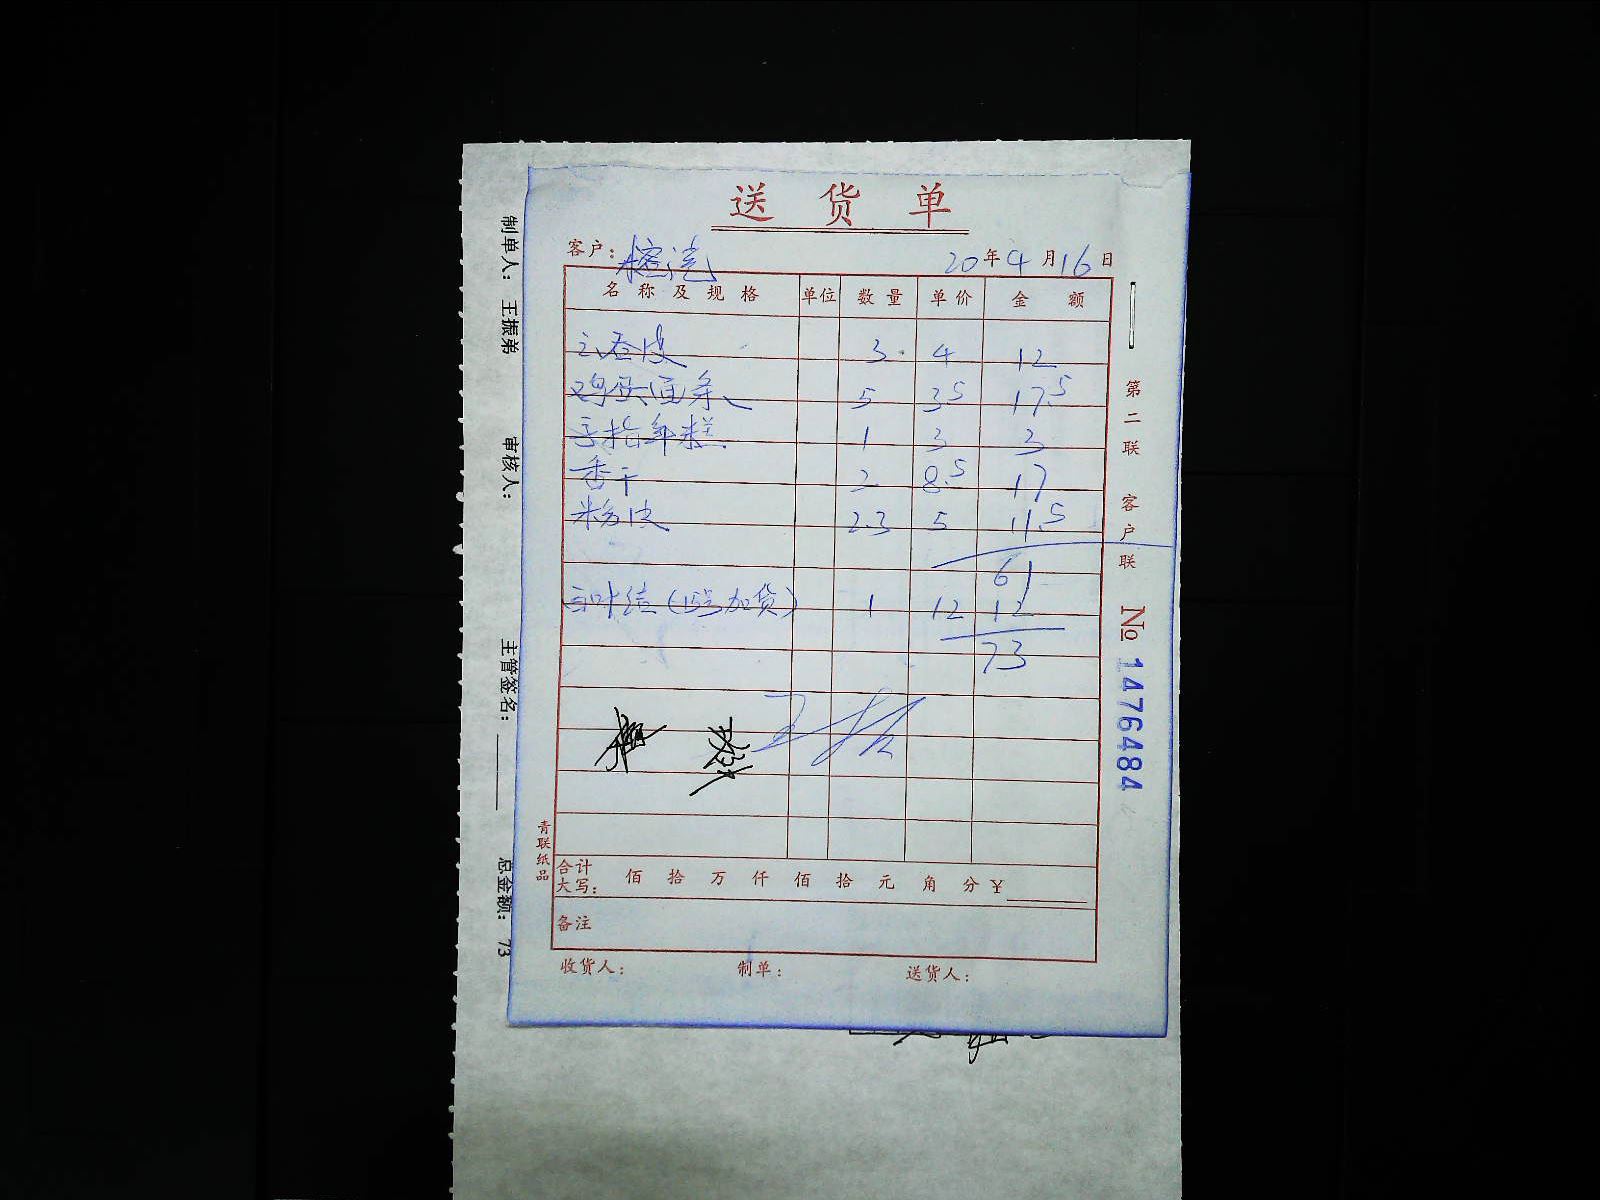 送货单
客户: 榕选 20年4月16日
名称及规格 单位 数量 单价 金额
云吞皮 3 4 12
鸡蛋面条 5 3.5 17.5
手指年糕 1 3 3
香干 2 8.5 17
米粉皮 2.3 5 11.5
61
百叶结(15号加货) 1 12 12
73
王振
合计大写: 佰 拾 万 仟 佰 拾 元 角 分 ¥
备注
收货人: 制单: 送货人:
青联纸品
第二联 客户联 No 1476484
制单人: 王振弟 审核人: 主管签名: 总金额: 73